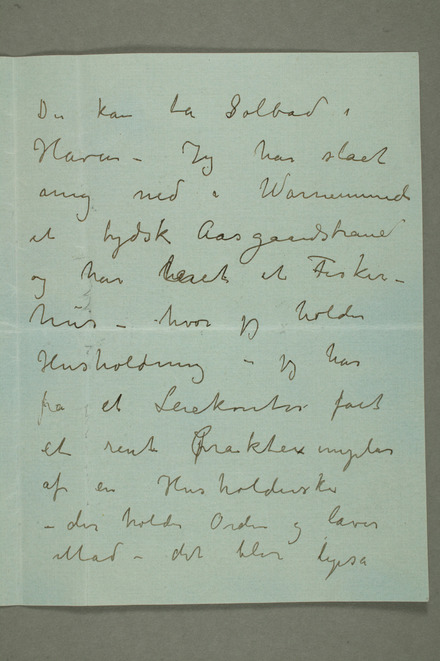 Du kan ta Solbad i
Haven – Jeg har slaaet
mig ned i Warnemünde
et tydsk Aasgaardstrand
og har leiet et Fisker-
hus – hvor jeg holder
Husholdning – jeg har
fra et Leiekontor faat
et rent Praktexemplar
af en Husholderske
– der holder Orden og laver
Mad – det blir ligesa